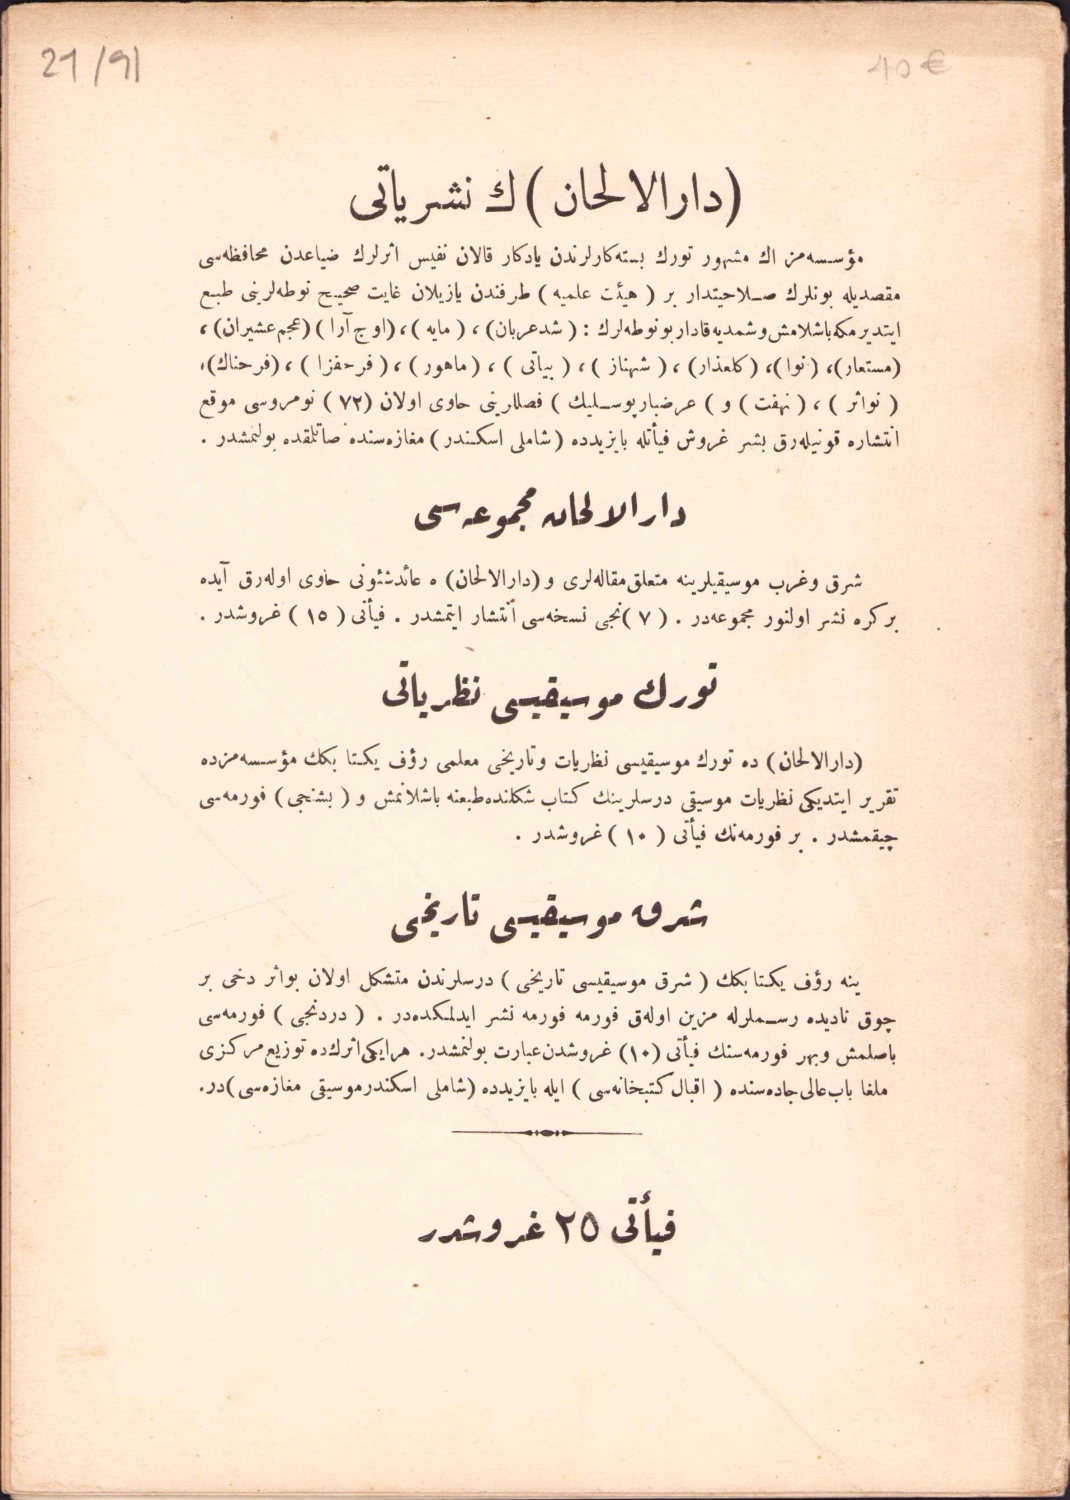 21/91
40 €
(دار الالحان) ك نشریاتی
مؤسسه‌مز اك مشهور تورك بسته‌کارلرندن یادکار قالان نفیس اثرلرك ضیاعدن محافظه‌سی
مقصدیله بونلرك صلاحیتدار بر ( هیئت علمیه ) طرفندن یازیلان غایت صحیح نوطه‌لرینی طبع
ایتدیرمکه باشلامش وشمدیه قادار بو نوطه‌لرك : ( شدعربان) ، ( مایه ) ، (اوج آرا ) (عجم عشیران) ،
(مستعار)، ( نوا )، (کلعذار) ، ( شهناز ) ، ( بیاتی ) ، ( ماهور ) ، ( فرحفزا ) ، (فرحناك)،
( نواثر ) ، ( نهفت ) و ) عرضبار پوسلیك ) فصللرینی حاوی اولان (٧٢ ) نومروسی موقع
انتشاره قونیله‌رق بشر غروش فیأتله بایزیدده (شاملی اسکندر ) مغازه‌سنده صاتلقده بولنمشدر .
دار الالحان مجموعه‌سی
شرق وغرب موسیقیلرینه متعلق مقاله‌لری و (دارالالحان) ه عائد شئونی حاوی اوله‌رق آیده
بر کره نشر اولنور مجموعه‌در . ( ٧ )نجی نسخه‌سی انتشار ایتمشدر . فیأتی ( ١٥ ) غروشدر .
تورك موسیقیسی نظریاتی
(دارالالحان) ده تورك موسیقیسی نظریات وتاریخی معلمی رؤف یکتا بكك مؤسسه‌مزده
تقریر ایتدیکی نظریات موسیقی درسلرینك کتاب شکلنده طبعنه باشلانمش و ( بشنجی ) فورمه‌سی
چیقمشدر . بر فورمه‌نك فیأتی ( ١٠ ) غروشدر .
شرق موسیقیسی تاریخی
ینه رؤف یکتا بكك ( شرق موسیقیسی تاریخی ) درسلرندن متشکل اولان بو اثر دخی بر
چوق نادیده رسملرله مزین اوله‌ق فورمه فورمه نشر ایدلمکده‌در . ( دردنجی ) فورمه‌سی
باصلمش وبهر فورمه‌سنك فیأتی (١٠) غروشدن عبارت بولنمشدر. هر ایکی اثرك ده توزیع مرکزی
ملغا باب عالی جاده‌سنده ( اقبال کتبخانه‌سی ) ایله بایزیدده (شاملی اسکندر موسیقی مغازه‌سی)در.
فیأتی ٢٥ غروشدر